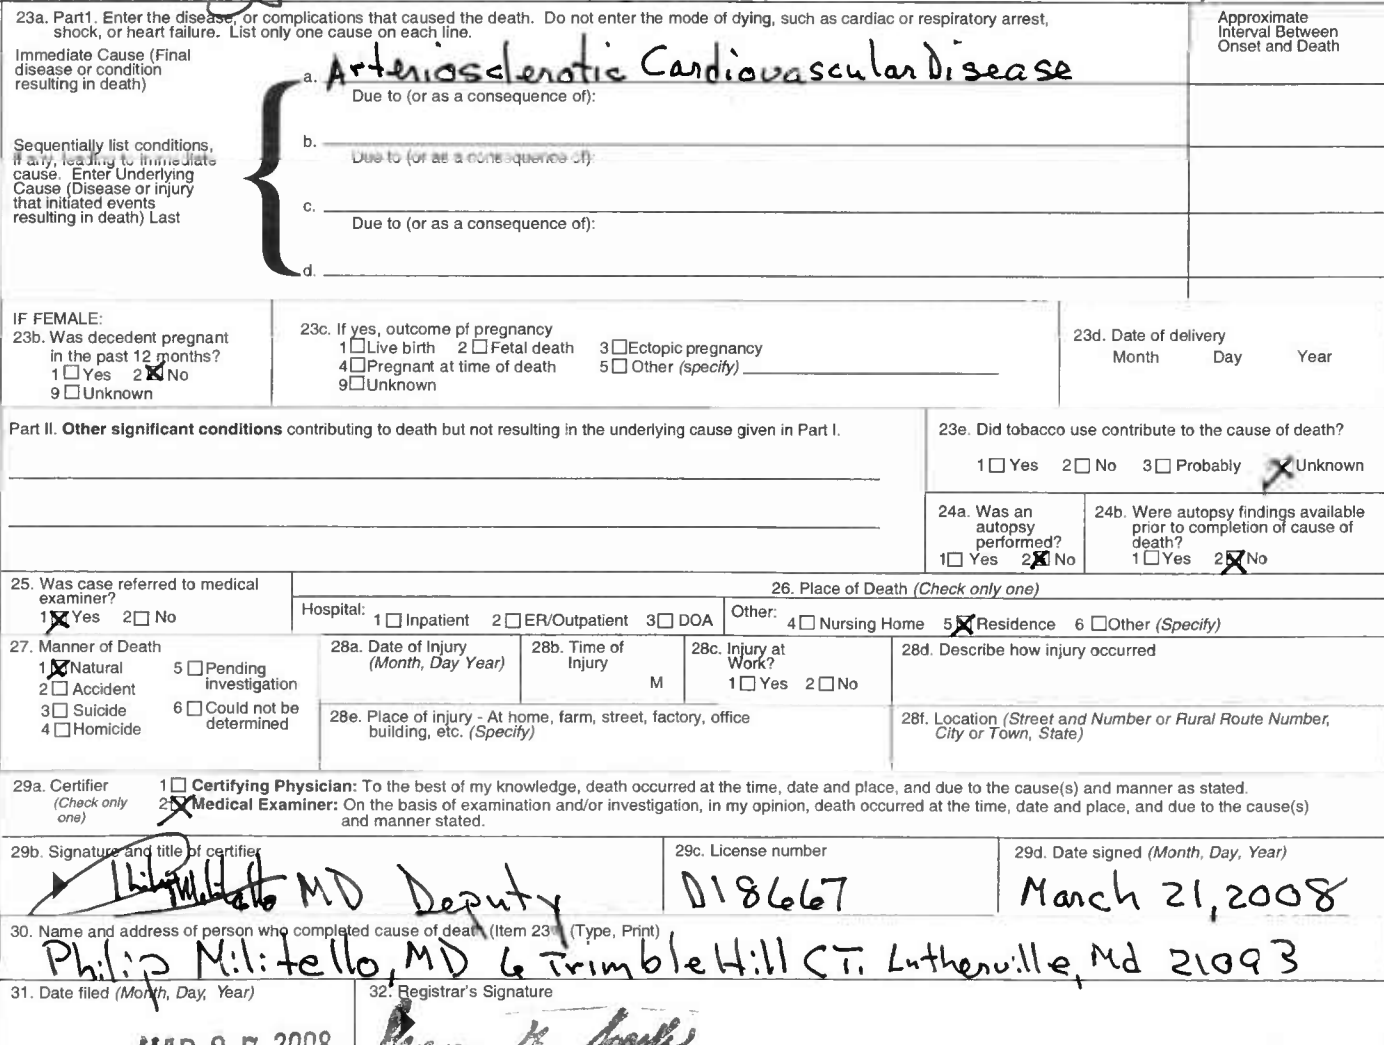 23a. Part1. Enter the disease, or complications that caused the death. Do not enter the mode of dying, such as cardiac or respiratory arrest,
shock, or heart failure. List only one cause on each line.
Approximate
Interval Between
Onset and Death
Immediate Cause (Final
disease or condition
resulting in death)
a. Arteriosclerotic Cardiovascular Disease
Due to (or as a consequence of):
Sequentially list conditions,
if any, leading to immediate
cause. Enter Underlying
Cause (Disease or injury
that initiated events
resulting in death) Last
b.
Due to (or as a consequence of):
c.
Due to (or as a consequence of):
d.
IF FEMALE:
23b. Was decedent pregnant
in the past 12 months?
1 ☐ Yes 2 ☒ No
9 ☐ Unknown
23c. If yes, outcome pf pregnancy
1 ☐ Live birth 2 ☐ Fetal death 3 ☐ Ectopic pregnancy
4 ☐ Pregnant at time of death 5 ☐ Other (specify)
9 ☐ Unknown
23d. Date of delivery
Month Day Year
Part II. Other significant conditions contributing to death but not resulting in the underlying cause given in Part I.
23e. Did tobacco use contribute to the cause of death?
1 ☐ Yes 2 ☐ No 3 ☐ Probably ☒ Unknown
24a. Was an
autopsy
performed?
1 ☐ Yes 2 ☒ No
24b. Were autopsy findings available
prior to completion of cause of
death?
1 ☐ Yes 2 ☒ No
25. Was case referred to medical
examiner?
1 ☒ Yes 2 ☐ No
26. Place of Death (Check only one)
Hospital: 1 ☐ Inpatient 2 ☐ ER/Outpatient 3 ☐ DOA Other: 4 ☐ Nursing Home 5 ☒ Residence 6 ☐ Other (Specify)
27. Manner of Death
1 ☒ Natural 5 ☐ Pending
investigation
2 ☐ Accident
3 ☐ Suicide 6 ☐ Could not be
determined
4 ☐ Homicide
28a. Date of Injury
(Month, Day Year)
28b. Time of
Injury
M
28c. Injury at
Work?
1 ☐ Yes 2 ☐ No
28d. Describe how injury occurred
28e. Place of injury - At home, farm, street, factory, office
building, etc. (Specify)
28f. Location (Street and Number or Rural Route Number,
City or Town, State)
29a. Certifier
(Check only
one)
1 ☐ Certifying Physician: To the best of my knowledge, death occurred at the time, date and place, and due to the cause(s) and manner as stated.
2 ☒ Medical Examiner: On the basis of examination and/or investigation, in my opinion, death occurred at the time, date and place, and due to the cause(s)
and manner stated.
29b. Signature and title of certifier
MD Deputy
29c. License number
D18667
29d. Date signed (Month, Day, Year)
March 21, 2008
30. Name and address of person who completed cause of death (Item 23 (Type, Print)
Philip Militello, MD 6 Trimble Hill CT. Lutherville, Md 21093
31. Date filed (Month, Day, Year)
2008
32. Registrar's Signature